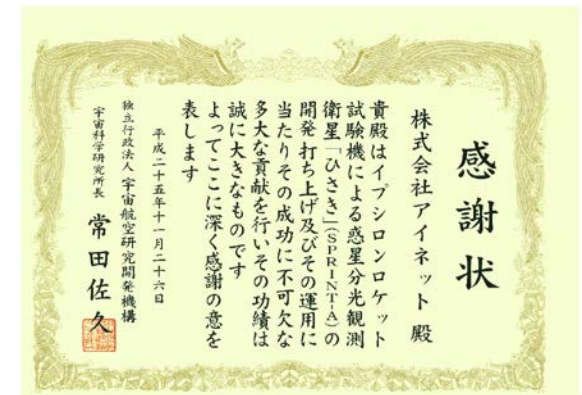 感謝状
株式会社アイネット 殿
貴殿はイプシロンロケット
試験機による惑星分光観測
衛星「ひさき」(SPRINT-A)の
開発打ち上げ及びその運用に
当たりその成功に不可欠な
多大な貢献を行いその功績は
誠に大きなものです
よってここに深く感謝の意を
表します
平成二十五年十一月二十六日
独立行政法人宇宙航空研究開発機構
宇宙科学研究所長 常田佐久